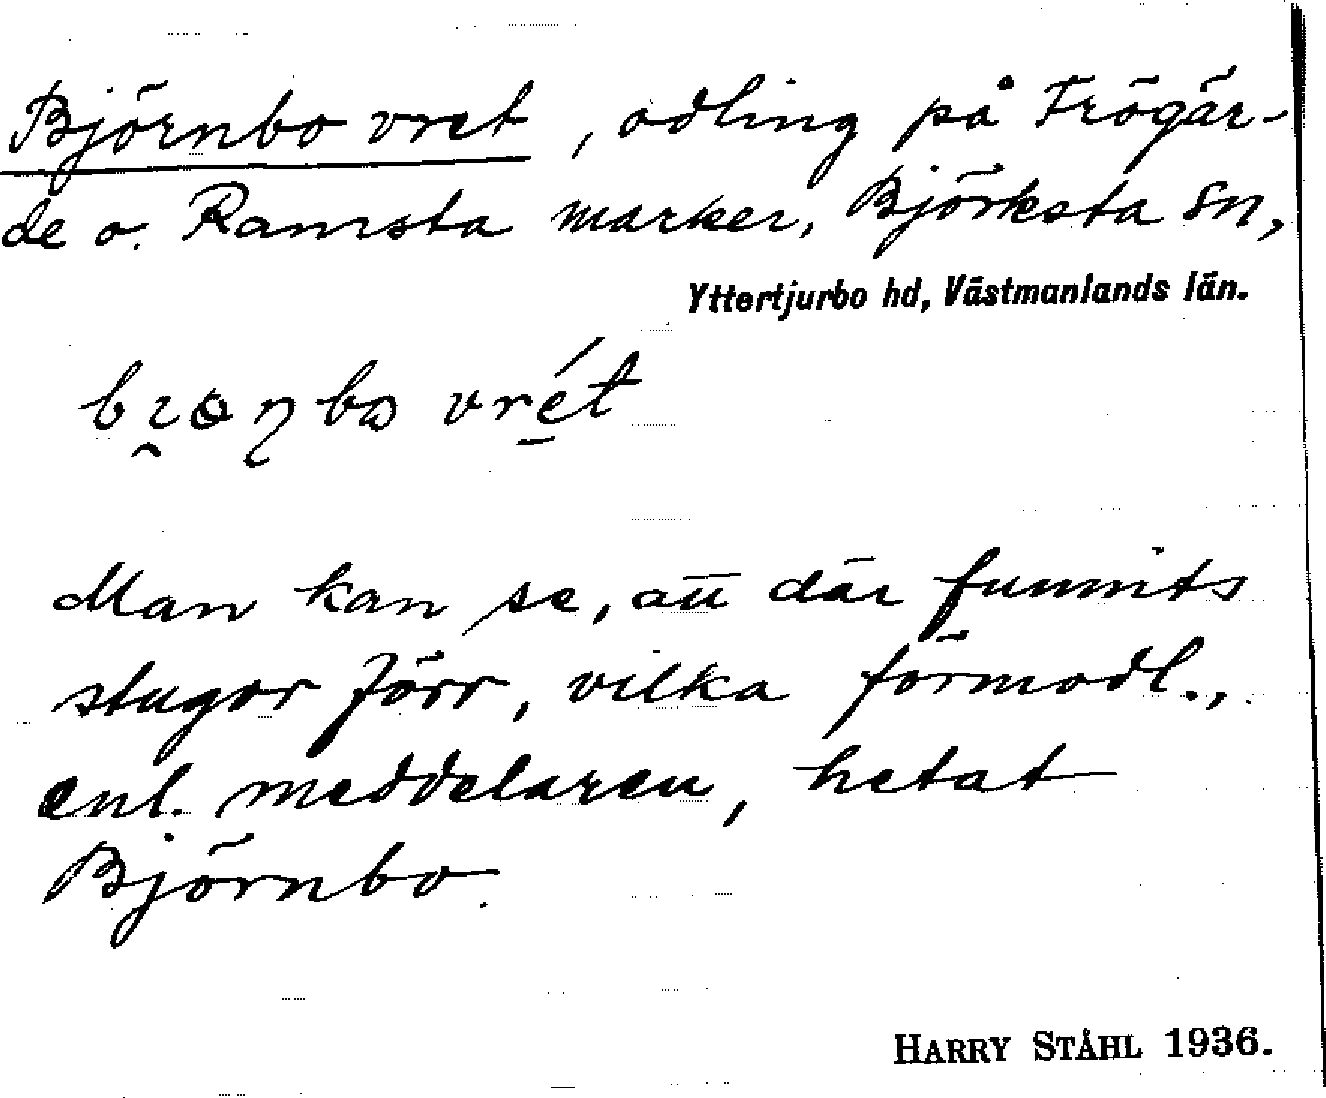 Björnbo vret, odling på Frögär-
de o. Ramsta marker, Björksta sn,
Yttertjurbo hd, Västmanlands län.
vrét
Man kan se, att där funnits
stugor förr, vilka förmodl.,
enl. meddelaren, hetat
Björnbo.
HARRY STÅHL 1936.